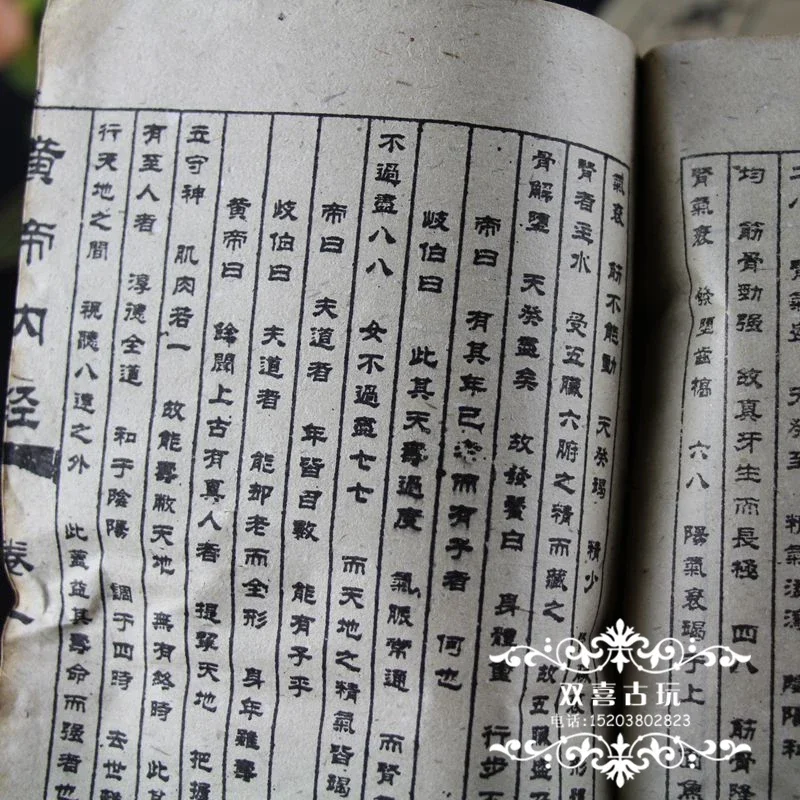 二八 腎氣盛 天癸至 精氣溢瀉 陰陽和
均 筋骨勁强 故真牙生而長極 四八 筋骨隆
腎氣衰 發墮齒槁 六八 陽氣衰竭于上 面焦
氣衰 筋不能動 天癸竭 精少 形體
腎者主水 受五臟六腑之精而藏之 故五臟盛
骨解墮 天癸盡矣 故發鬢白 身體重 行步不
帝曰 有其年已老而有子者 何也
岐伯曰 此其天壽過度 氣脈常通 而腎
不過盡八八 女不過盡七七 而天地之精氣皆竭
帝曰 夫道者 年皆百數 能有子乎
岐伯曰 夫道者 能却老而全形 身年雖壽
黄帝曰 餘聞上古有真人者 提挈天地 把握
立守神 肌肉若一 故能壽敝天地 無有終時 此其
有至人者 淳德全道 和于陰陽 調于四時 去世離
行天地之間 視聽八達之外 此蓋益其壽命而强者也
黄帝内经 卷
双喜古玩
电话:15203802823